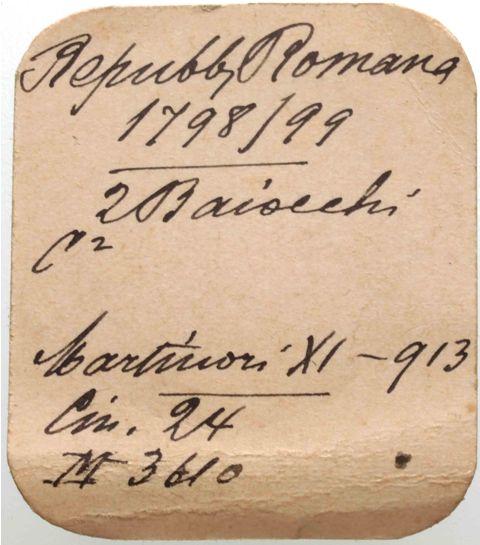 Repubb, Romana
1798/99
2 Baiocchi
C²
Martinori XI - 913
Cin. 24
M 3610